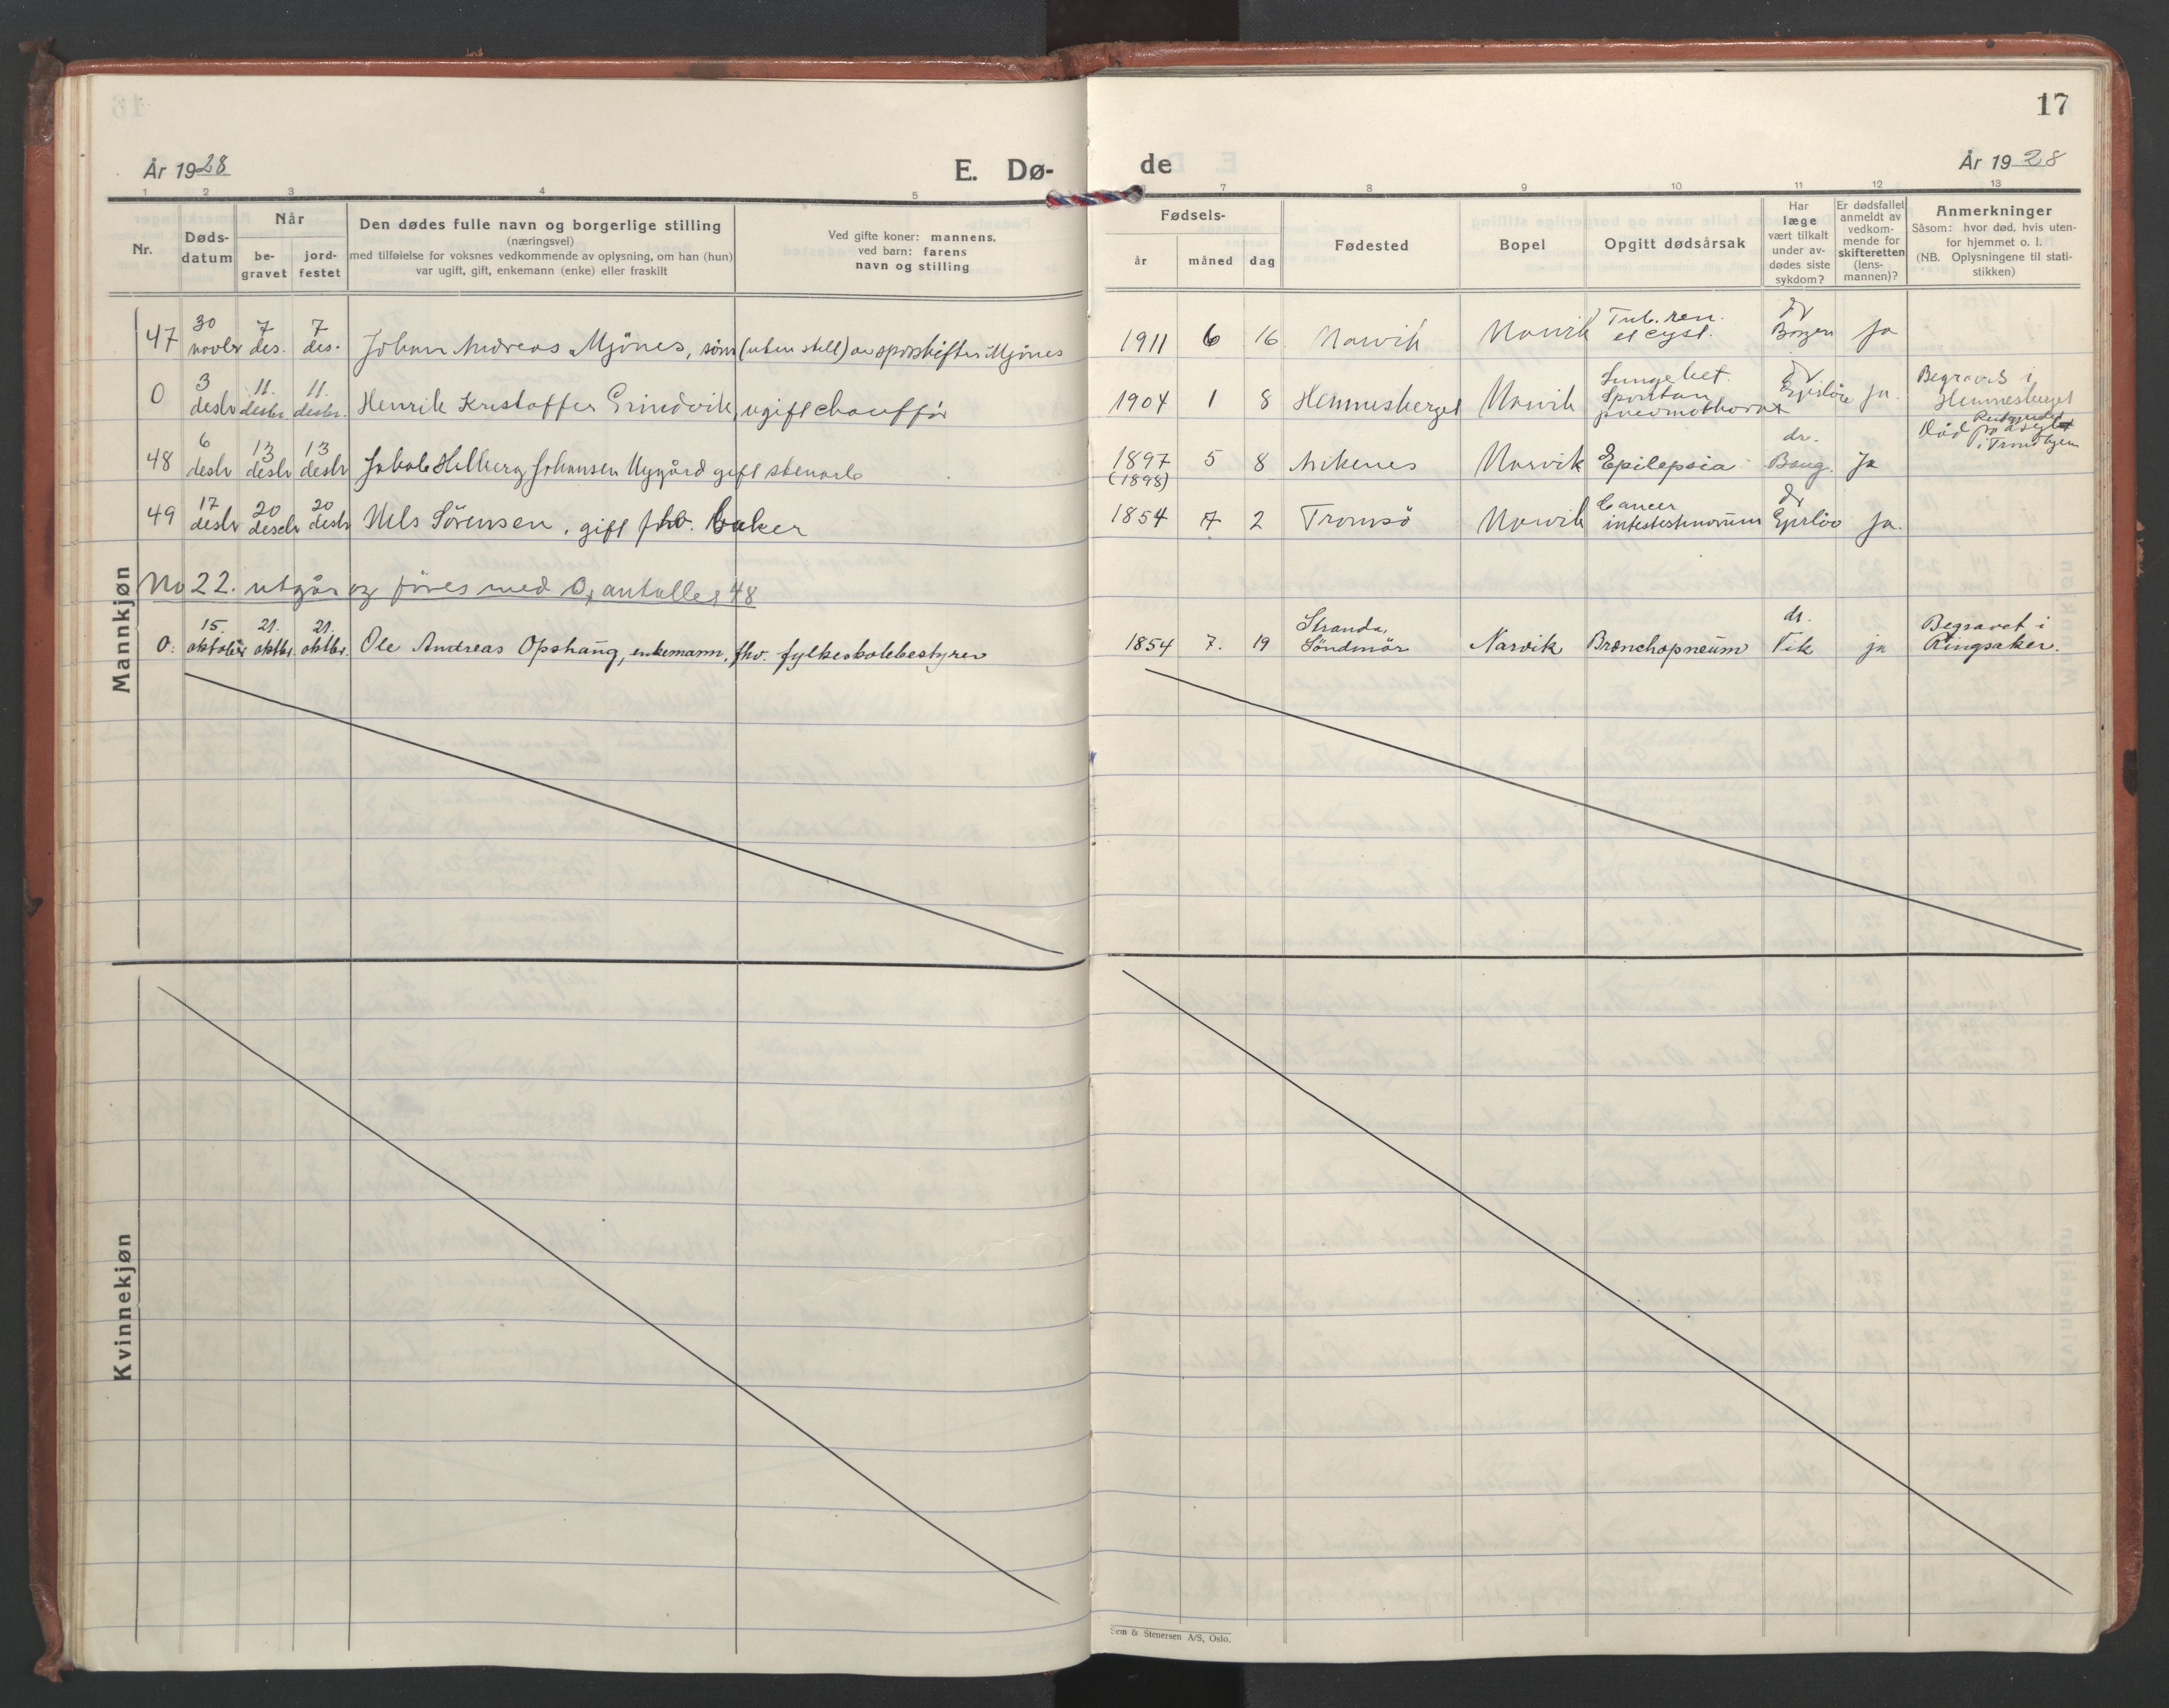 17
År 1928
E. Dø-
de
År 1928
1 2 3 4 5 7 8 9 10 11 12 13
Nr.
Døds-
datum
Når
be-
gravet
jord-
festet
Den dødes fulle navn og borgerlige stilling
(næringsvei)
med tilføielse for voksnes vedkommende av oplysning, om han (hun)
var ugift, gift, enkemann (enke) eller fraskilt
Ved gifte koner: mannens,
ved barn: farens
navn og stilling
Fødsels-
år
måned
dag
Fødested
Bopel
Opgitt dødsårsak
Har
læge
vært tilkalt
under av-
dødes siste
sykdom?
Er dødsfallet
anmeldt av
vedkom-
mende for
skifteretten
(lens-
mannen)?
Anmerkninger
Såsom: hvor død, hvis uten-
for hjemmet o. l.
(NB. Oplysningene til stati-
stikken)
Mannkjøn
47 30 novbr 7 des. 7 des. Johan Andreas Mjönes, sönn (uten still) av sporskifter Mjönes 1911 6 16 Narvik Narvik Tub. ren. et cyst. Dr Borgen ja
0 3 desbr 11. desbr. 11. desbr. Henrik Kristoffer Grindvik, ugift chaufför 1904 1 8 Hemnesberget Narvik Lungebet. Spontan pneumothorax Dr ja. Begravet i Hemnesberget
48 6 desbr 13 desbr 13 desbr Jakob Hilberg Johansen Nygård gift stenarb 1897 (1898) 5 8 Narvik Epilepsia dr. Baug. Ja Död på i Trondhjem
49 17 desbr 20 desbr 20 desbr Nils Sörensen, gift fhv. baker 1854 7 2 Tromsö Narvik Cancer intestestinorum Dr ja.
No 22. utgår og föres med 0, antallet 48
0. 15. oktober 21. oktbr. 21. oktbr. Ole Andreas Opshaug, enkemann, fhv. fylkesskolebestyrer 1854 7. 19 Stranda, Söndmör Narvik Bronchopneum dr. Vik ja Begravet i Ringsaker.
Kvinnekjøn
Sem & Stenersen A/S, Oslo.